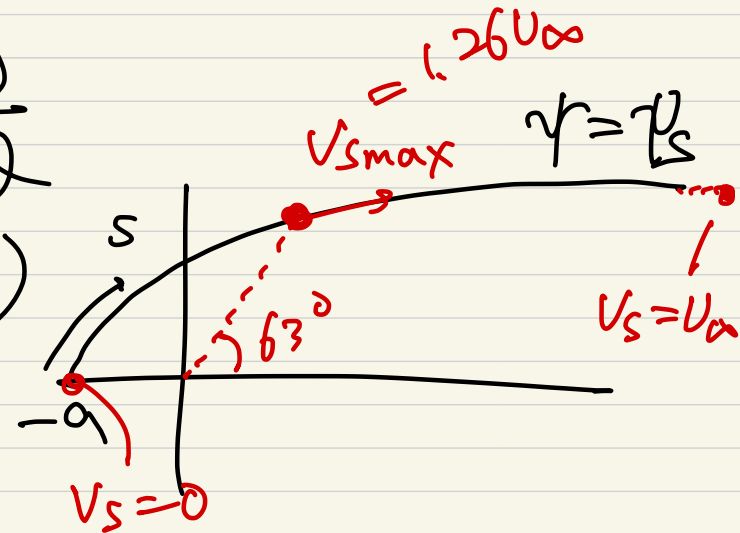 = 1.26U∞
Vsmax
ψ = ψs
s
63°
Vs = U∞
-a
Vs = 0